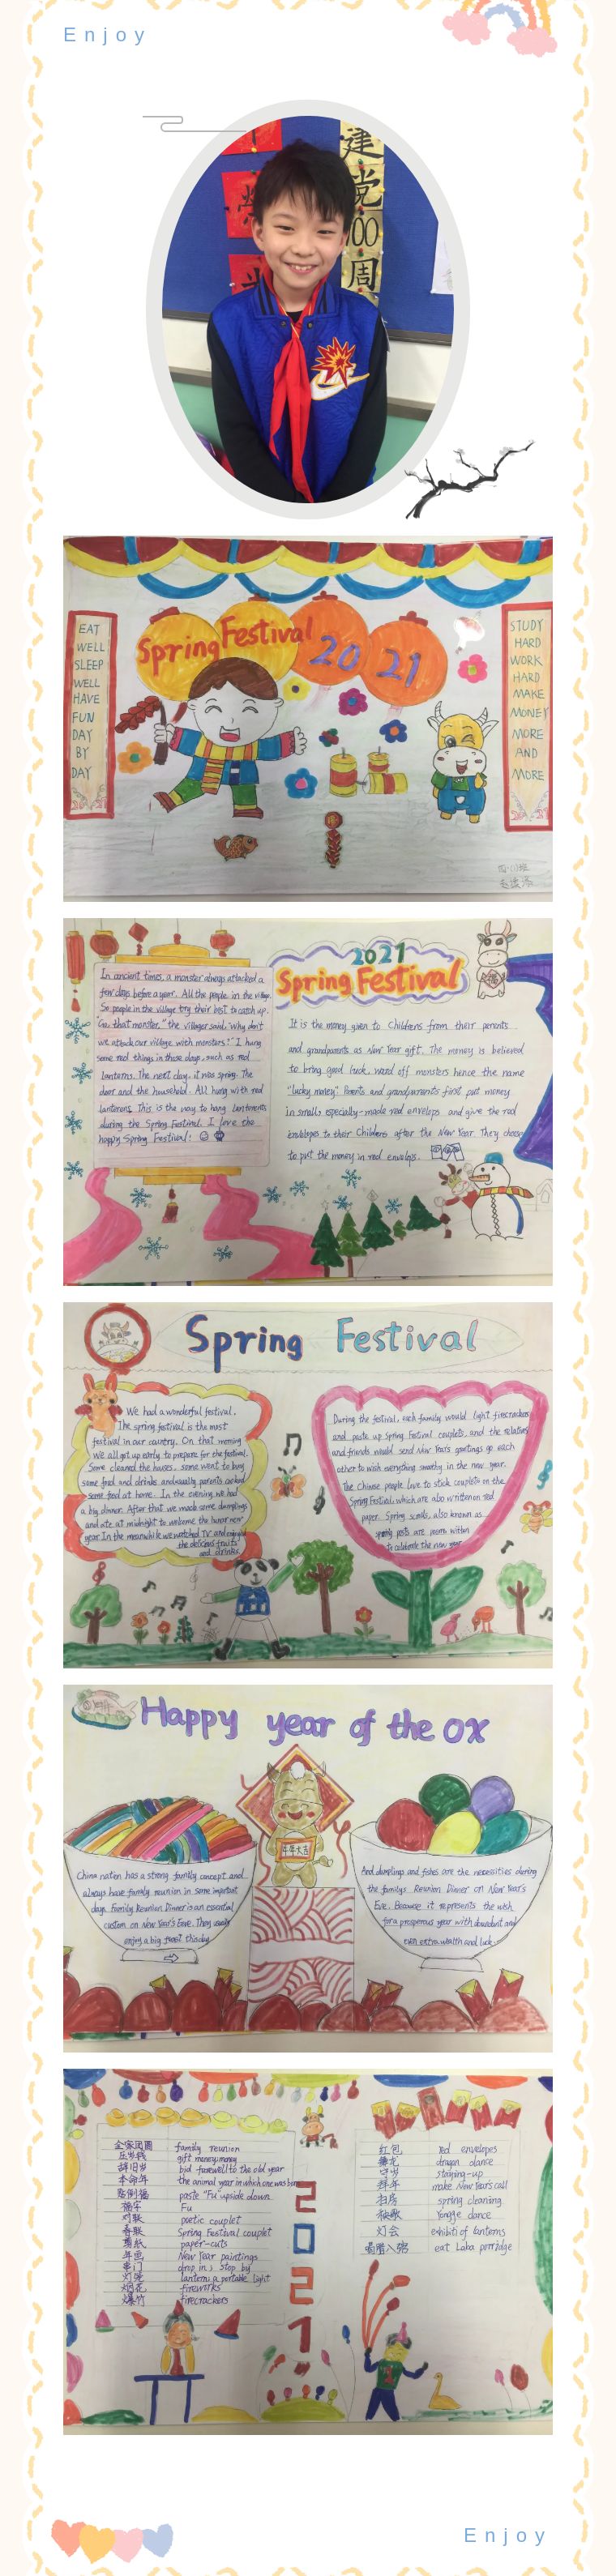 Enjoy
建
党
100
周
EAT
WELL
SLEEP
WELL
HAVE
FUN
DAY
BY
DAY
Spring Festival
2021
STUDY
HARD
WORK
HARD
MAKE
MONEY
MORE
AND
MORE
In ancient times, a monster always attacked a
few days before a year. All the people in the village.
So people in the village try their best to catch up.
"Go, that monster," the villager said, "Why don't
we attack our village with monsters!" I hung
some red things in those days, such as red
lanterns. The next day, it was spring. The
door and the household. All hung with red
lanterns. This is the way to hang lanterns
during the Spring Festival. I love the
happy Spring Festival!
2021
Spring Festival
福
It is the money given to Childrens from their parents
and grandparents as New Year gift. The money is believed
to bring good luck, ward off monsters hence the name
"lucky money". Parents and grandparents first put money
in small, especially-made red envelops and give the red
envelopes to their Childrens after the New Year. They choose
to put the money in red envelops.
Spring Festival
We had a wonderful festival.
The spring festival is the most
festival in our country. On that morning
we all get up early to prepare for the festival.
Some cleaned the houses, some went to buy
some food and drinks and usually parents cooked
some food at home. In the evening we had
a big dinner. After that we made some dumplings
and ate at midnight to welcome the new
year. In the meanwhile we watched TV and enjoyed
the delicious fruits
and drinks
During the festival, each family would light firecrackers
and paste up Spring Festival couplets, and the relatives
and friends would send New Year's greetings go each
other to wish everything smoothy in the new year.
The Chinese people love to stick couplets on the
Spring Festival, which are also written on red
paper. Spring scrolls, also known as
posts are poems written
to celebrate the new year
Happy year of the ox
牛年大吉
China nation has a strong family concept and
always have family reunion in some important
days. Family Reunion Dinner is an essential
custom on New Year's Eve. They usually
enjoy a big feast this day.
And dumplings and fishes are the necessities during
the familys Reunion Dinner on New Year's
Eve. Because it represents the wish
for a prosperous year with abundant and
even extra wealth and luck.
全家团圆 family reunion
压岁钱 gift money; money
辞旧岁 bid farewell to the old year
本命年 the animal year in which one was born
贴倒福 paste "Fu" upside down
福字 Fu
对联 poetic couplet
春联 Spring Festival couplet
剪纸 paper-cuts
年画 New Year paintings
串门 drop in; stop by
灯笼 lantern; a portable light
烟花 fireworks
爆竹 firecrackers
2021
红包 red envelopes
舞龙 dragon dance
守岁 staying-up
拜年 make New Year's call
扫房 spring cleaning
秧歌 Yangge dance
灯会 exhibiti of lanterns
喝腊八粥 eat Laba porridge
Enjoy